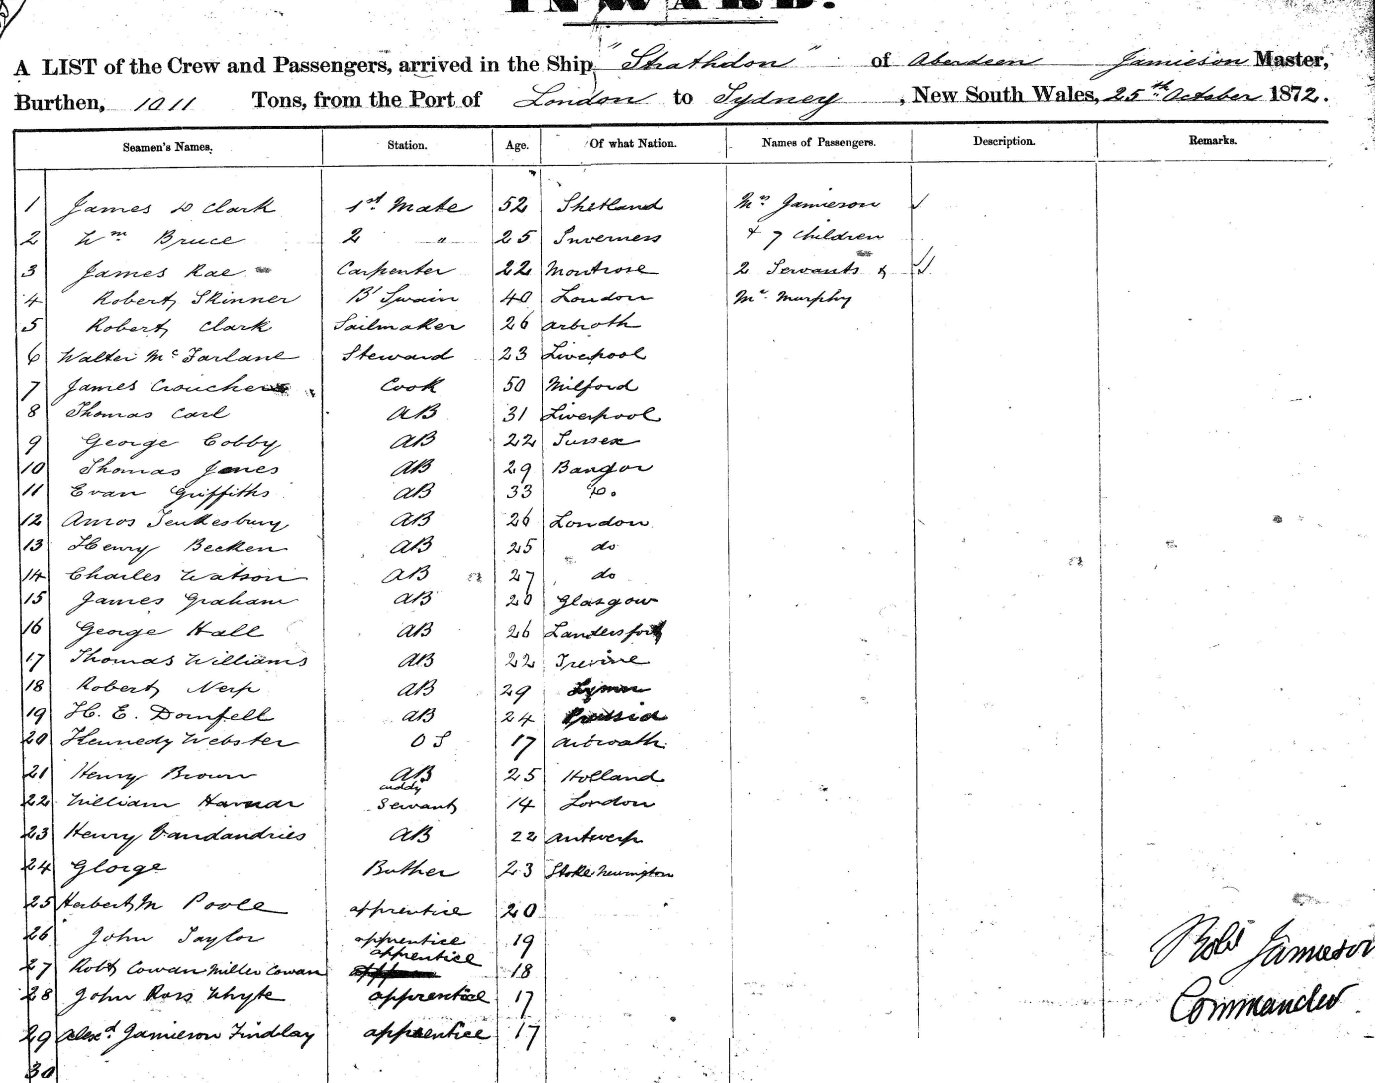 INWARD.
A LIST of the Crew and Passengers, arrived in the Ship "Strathdon" of Aberdeen Jamieson Master,
Burthen, 1011 Tons, from the Port of London to Sydney, New South Wales, 25th October 1872.
Seamen's Names. Station. Age. Of what Nation. Names of Passengers. Description. Remarks.
1 James D Clark 1st Mate 52 Shetland Mrs Jamieson
2 Wm Bruce 2 " 25 Inverness + 7 children
3 James Rae Carpenter 22 Montrose 2 Servants &
4 Robert Skinner Bt Swain 40 London Mr Murphy
5 Robert Clark Sailmaker 26 Arbroth
6 Walter McFarlane Steward 23 Liverpool
7 James Croucher Cook 50 Milford
8 Thomas Carl AB 31 Liverpool
9 George Cobby AB 22 Sussex
10 Thomas Jones AB 29 Bangor
11 Evan Griffiths AB 33 Do.
12 Amos Teukesbury AB 26 London
13 Henry Becken AB 25 do
14 Charles Watson AB 27 do
15 James Graham AB 20 Glasgow
16 George Hall AB 26
17 Thomas Williams AB 22 Irevine
18 Robert AB 29 Lymn
19 H. E. AB 24
20 Kennedy Webster OS 17
21 Henry Brown AB 25 Holland
22 William cuddy Servant 14 London
23 Henry Vandandries AB 22 Antwerp
24 George Buther 23 Stoke Newington
25 Herbert M Poole apprentice 20
26 John Taylor apprentice 19
27 Robt Cowan Miller Cowan apprentice 18
28 John Ross Whyte apprentice 17
29 Alexd Jamieson Findlay apprentice 17
30
Robt Jamieson
Commander